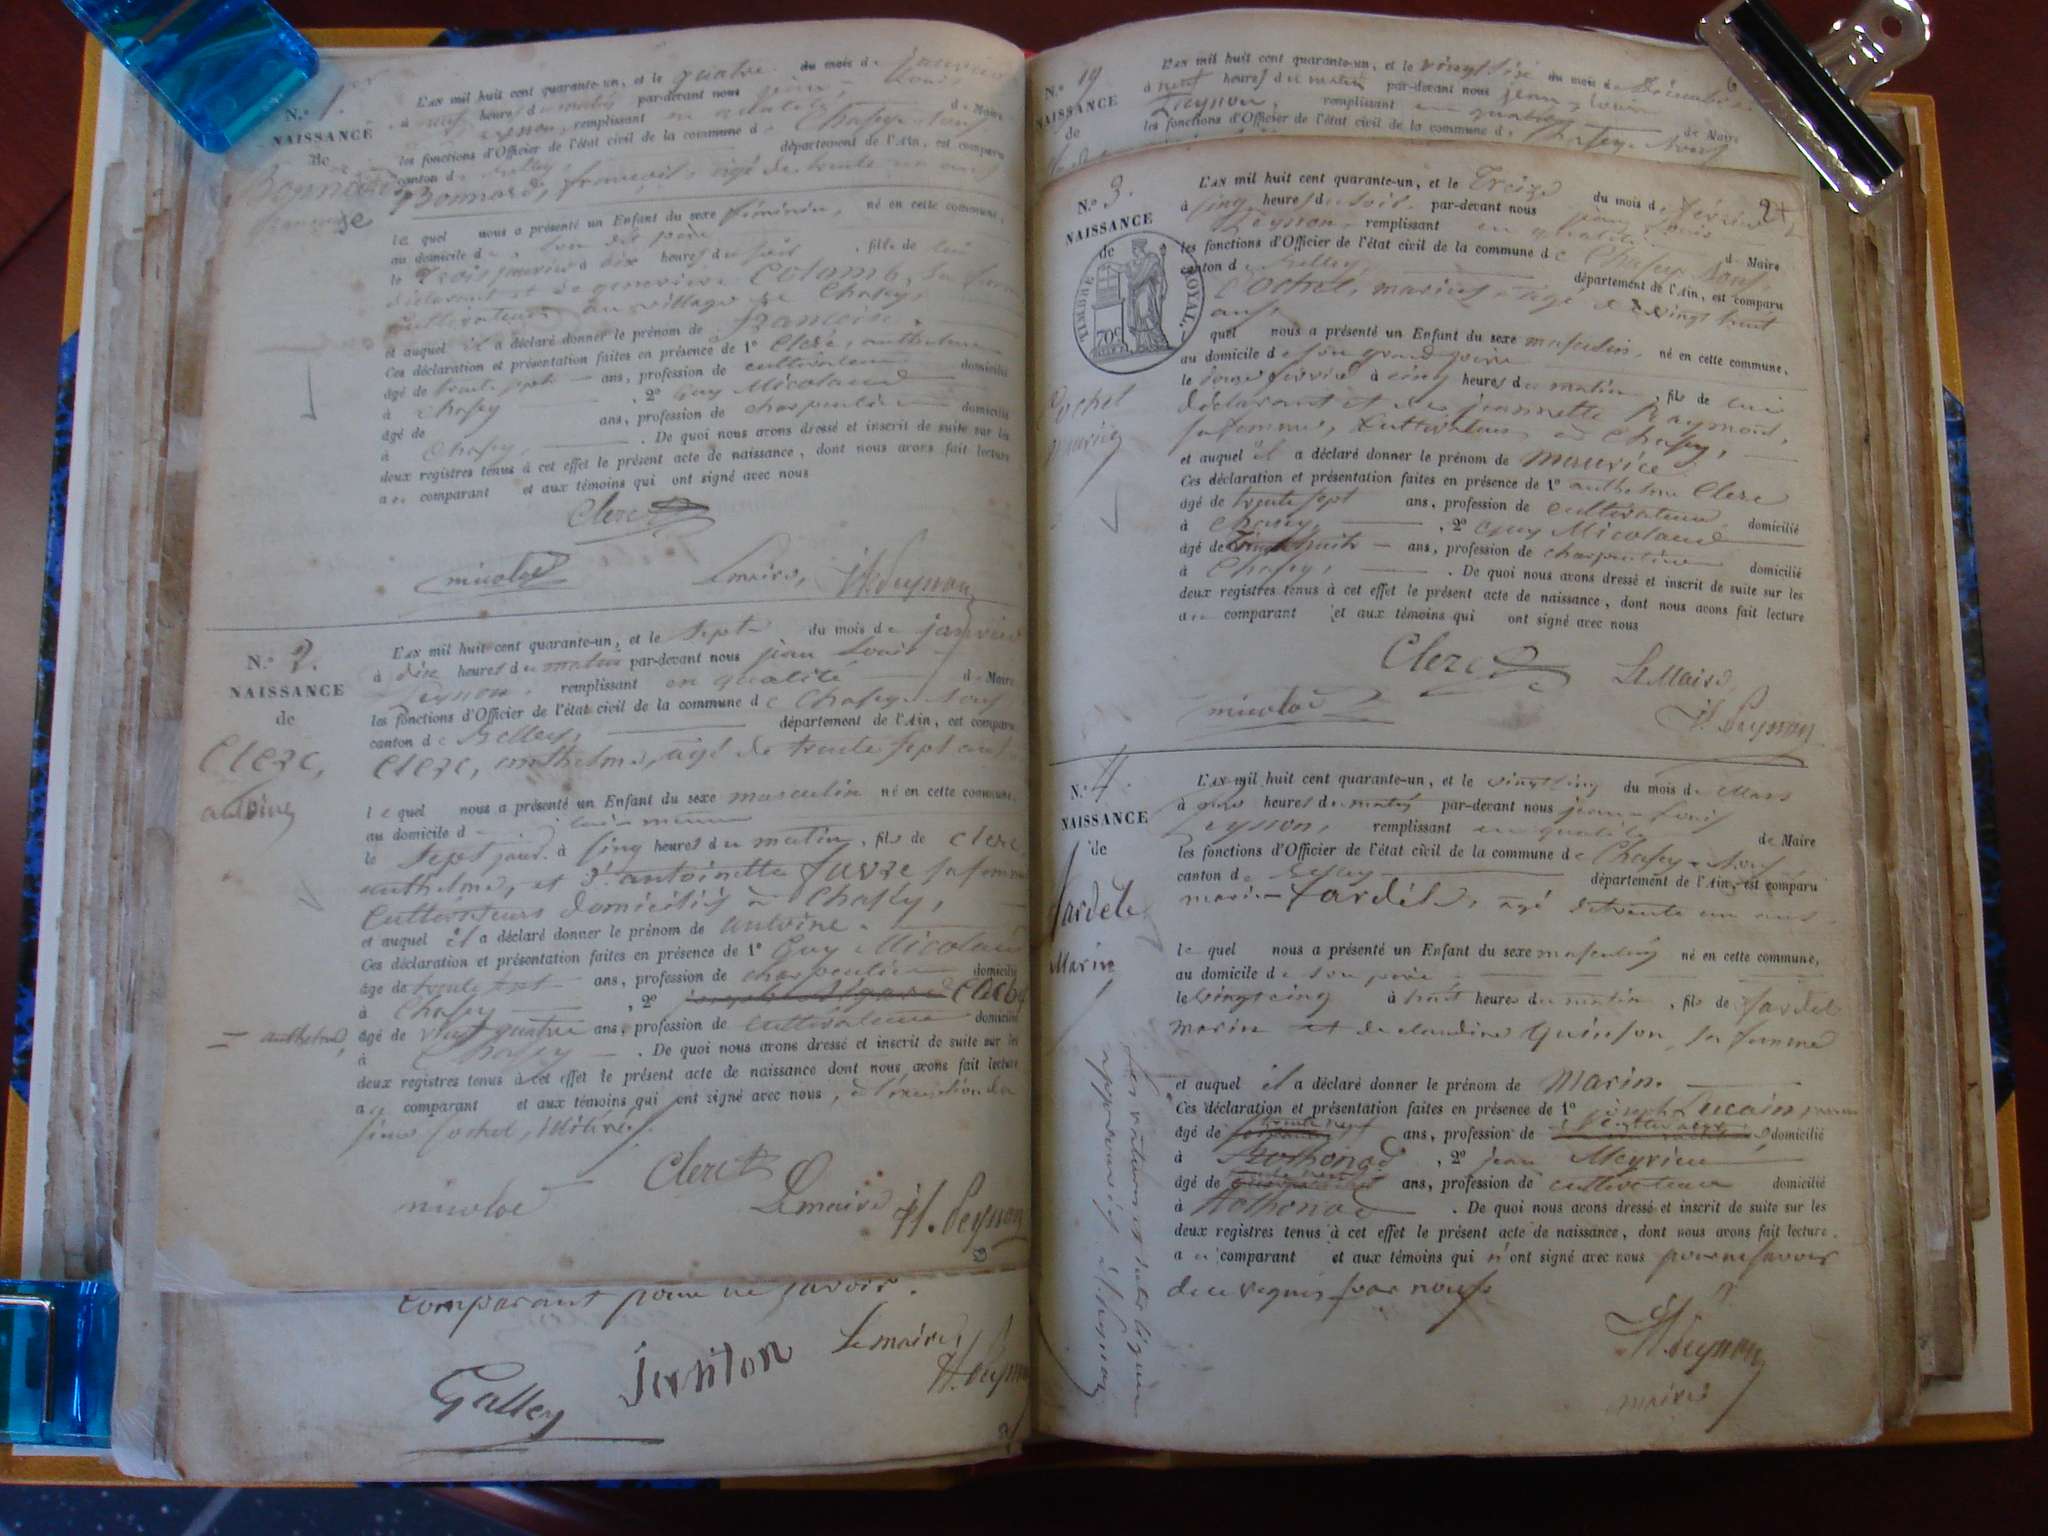 N.o 1.
NAISSANCE
de
Bonnard
françoise
L'AN mil huit cent quarante-un, et le quatre du mois de janvier
à neuf heures du matin par-devant nous jean Louis
Peysson, remplissant en qualité de Maire
les fonctions d'Officier de l'état civil de la commune de Chasey-Bons
canton de Belley, département de l'Ain, est comparu
Bonnard, françois, agé de trente un ans
lequel nous a présenté un Enfant du sexe féminin, né en cette commune,
au domicile de son dit père
le Trois janvier à dix heures du soir, fille de lui
déclarant et de genevieve Colomb, sa femme
cultivateurs au village de Chasey,
et auquel il a déclaré donner le prénom de françoise.
Ces déclaration et présentation faites en présence de 1o Clerc, anthelme
âgé de trente sept ans, profession de cultivateur domicilié
à Chasey, 2o Guy Nicoland
âgé de ans, profession de charpentier domicilié
à Chasey, . De quoi nous avons dressé et inscrit de suite sur les
deux registres tenus à cet effet le présent acte de naissance, dont nous avons fait lecture
au comparant et aux témoins qui ont signé avec nous
Clerc
nicolod Le maire, JL Peysson
N.o 2.
NAISSANCE
de
Clerc,
antoine
L'AN mil huit cent quarante-un, et le sept du mois de janvier
à dix heures du matin par-devant nous jean Louis
Peysson, remplissant en qualité de Maire
les fonctions d'Officier de l'état civil de la commune de Chasey-Bons
canton de Belley, département de l'Ain, est comparu
Clerc, anthelme, agé de trente sept ans
lequel nous a présenté un Enfant du sexe masculin né en cette commune,
au domicile de lui-même
le sept janv. à cinq heures du matin, fils de Clerc
anthelme, et d'antoinette favre sa femme
Cultivateurs domiciliés à Chasey,
et auquel il a déclaré donner le prénom de antoine.
Ces déclaration et présentation faites en présence de 1o Guy Nicoland
âgé de trente sept ans, profession de charpentier domicilié
à Chasey, 2o
anthelme,
âgé de vingt quatre ans, profession de cultivateur domicilié
à Chasey . De quoi nous avons dressé et inscrit de suite sur les
deux registres tenus à cet effet le présent acte de naissance dont nous avons fait lecture
au comparant et aux témoins qui ont signé avec nous, à l'exception du
Clerc
nicolod Le maire JL. Peysson
comparant pour ne savoir.
Galley janiton Le maire, JL. Peysson
N.o 19
NAISSANCE
de
L'AN mil huit cent quarante-un, et le vingt six du mois de Décembre
à neuf heures du matin par-devant nous jean Louis
Peysson, remplissant en qualité de Maire
les fonctions d'Officier de l'état civil de la commune de Chasey-Bons
N.o 3.
NAISSANCE
de
TIMBRE ROYAL
70c
Cochet
maurice
2
L'AN mil huit cent quarante-un, et le Treize du mois de février
à cinq heures du soir par-devant nous jean Louis
Peysson, remplissant en qualité de Maire
les fonctions d'Officier de l'état civil de la commune de Chasey-Bons,
canton de Belley, département de l'Ain, est comparu
Cochet, marius agé de vingt huit
ans,
quel nous a présenté un Enfant du sexe masculin, né en cette commune,
au domicile de son grand père
le février à cinq heures du matin, fils de lui
déclarant et de jeannette Raymond,
sa femme, Cultivateurs à Chasey,
et auquel il a déclaré donner le prénom de maurice
Ces déclaration et présentation faites en présence de 1o anthelme Clerc
âgé de trente sept ans, profession de cultivateur domicilié
à Chasey, 2o Guy Nicoland
âgé de ans, profession de charpentier domicilié
à Chasey, . De quoi nous avons dressé et inscrit de suite sur les
deux registres tenus à cet effet le présent acte de naissance, dont nous avons fait lecture
au comparant et aux témoins qui ont signé avec nous
Clerc Le Maire
nicolod JL. Peysson
N.o 4.
NAISSANCE
de
Tardel
Marin
L'AN mil huit cent quarante-un, et le vingt cinq du mois de Mars
à heures du matin par-devant nous jean Louis
Peysson, remplissant en qualité de Maire
les fonctions d'Officier de l'état civil de la commune de Chasey-Bons
canton de Belley département de l'Ain, est comparu
marin Tardel, agé de trente un ans
lequel nous a présenté un Enfant du sexe masculin né en cette commune,
au domicile de son père
le vingt cinq à huit heures du matin, fils de Tardel
marin et de claudine Quinson, sa femme
et auquel il a déclaré donner le prénom de Marin.
Ces déclaration et présentation faites en présence de 1o joseph Lucain,
âgé de ans, profession de domicilié
à Rothonod, 2o jean Meyrieu
âgé de ans, profession de cultivateur domicilié
à Rothonod . De quoi nous avons dressé et inscrit de suite sur les
deux registres tenus à cet effet le présent acte de naissance, dont nous avons fait lecture.
au comparant et aux témoins qui n'ont signé avec nous pour ne savoir
de ce requis par nous
JL. Peysson
maire
Les ratures et interlignes
approuvés JL. Peysson